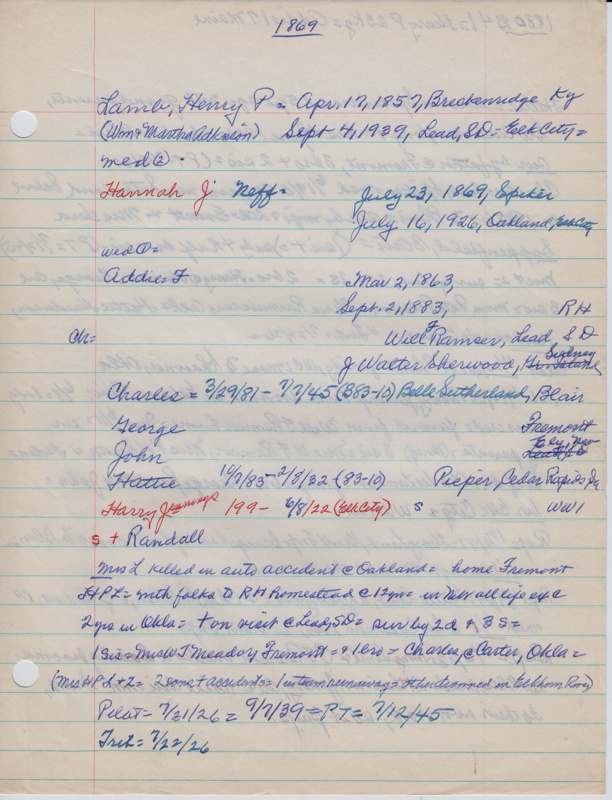 1869
Lamb, Henry P = Apr. 17, 1857, Breckenridge Ky
(Wm & Martha Adkinson) Sept 4, 1939, Lead, SD = Elk City =
wed ② =
Hannah J Neff = July 23, 1869,
July 16, 1926, Oakland, Elk City
wed ① =
Addie F Mar 2, 1863,
Sept. 2, 1883, RH
Ch = Will F Ramser, Lead SD
J Walter Sherwood, Gr. Island Sydney
Charles = 3/29/81 - 7/7/45 (B83-10) Belle Sutherland, Blair
George Fremont
John Ely, Nev Lead, SD
Hattie 10/7/83 - 2/8/32 (83-10) Pieper Cedar Rapids, Ia
Harry Jennings 199 - 6/8/22 (Elk City) s WW1
s + Randall
Mrs L killed in auto accident @ Oakland = home Fremont
HPL = with folks to RH Homestead @ 12 yrs = in Nebr all life exc
2 yrs in Okla = + on visit @ Lead, SD = sur by 2d & 3 s =
1 sis = Mrs W T Meador, Fremont = & 1 bro = Charles, @ Carter, Okla =
(Mrs HPL + 2 = 2 sons + accidents = 1 in team runaway = other drowned in Elkhorn River)
Pilot = 7/21/26 = 9/7/39 = PT = 7/12/45
Trib = 7/22/26